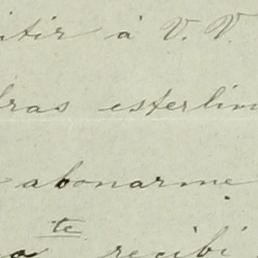 itir á V. V.
bras esterlin
abonarme
te
recibí